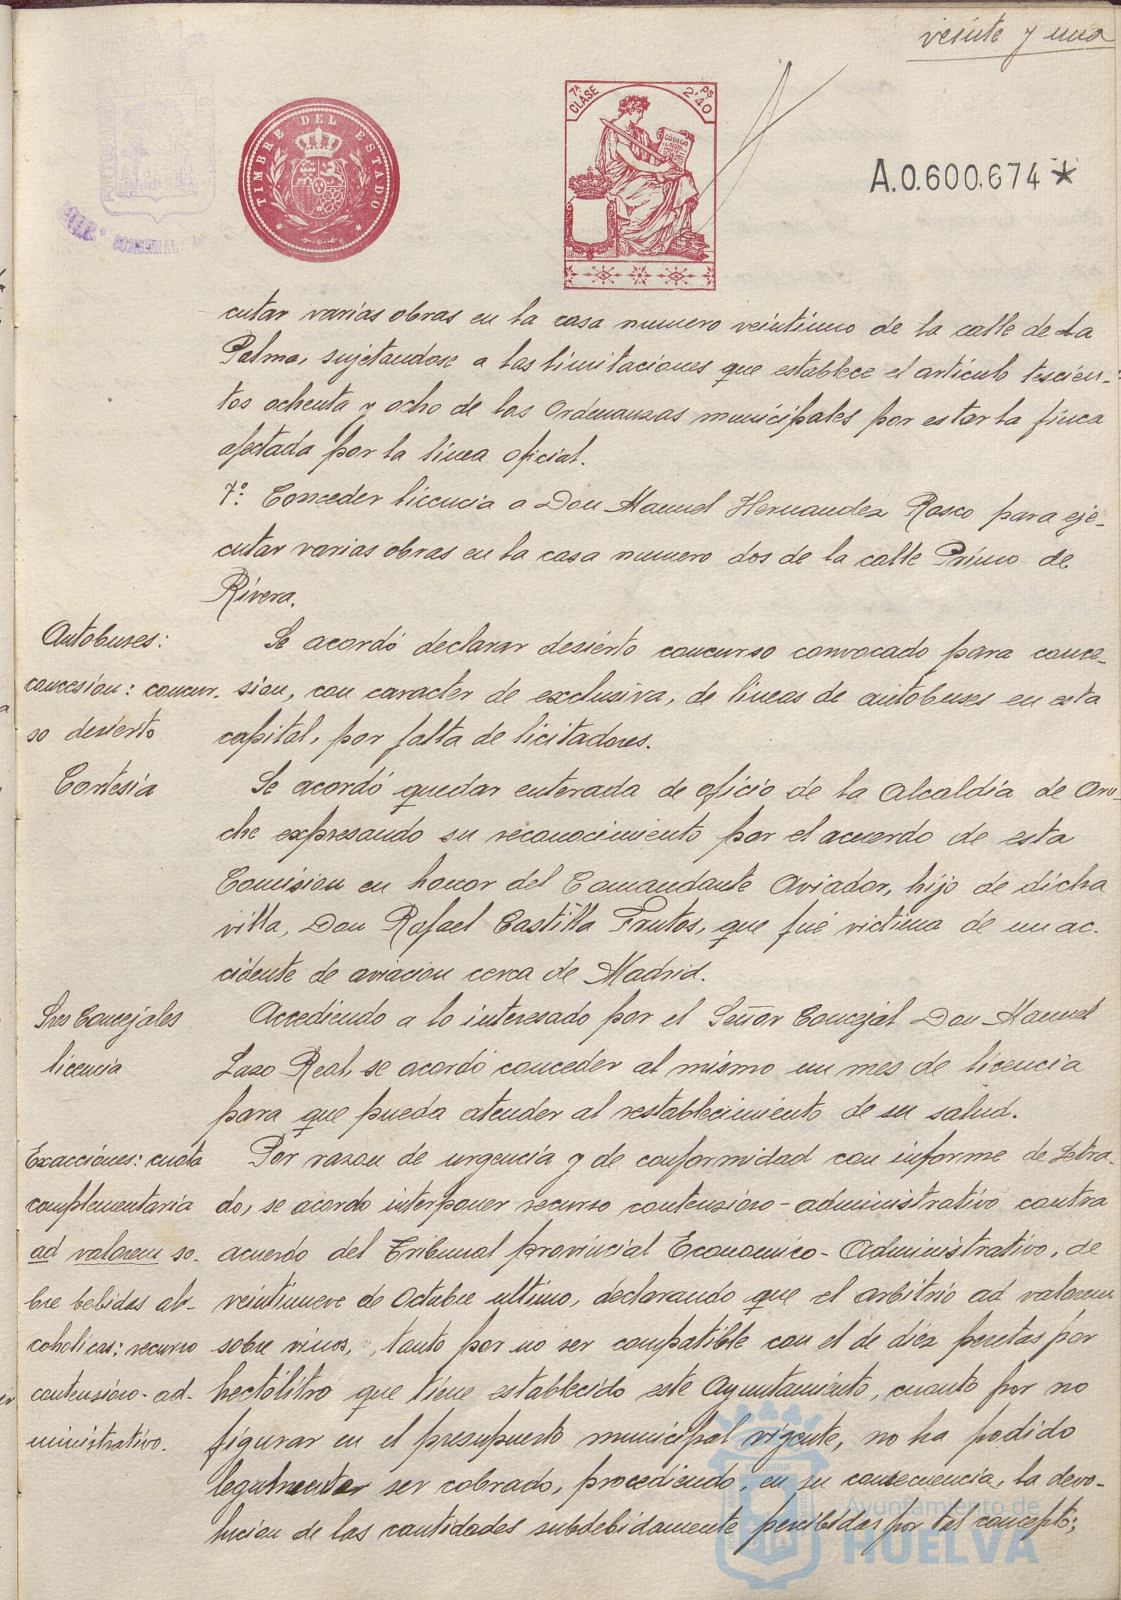 veinte y una
TIMBRE DEL ESTADO
7ª CLASE
Ps 2'40
CODIGO
A.0.600.674 *
cutar varias obras en la casa numero veintiuno de la calle de La
Palma, sujetandose a las limitaciones que establece el articulo tescien-
tos ochenta y ocho de las Ordenanzas municipales por estar la finca
afectada por la linea oficial.
7º Conceder licencia a Don Manuel Hernandez Rasco para eje-
cutar varias obras en la casa numero dos de la calle Primo de
Rivera.
Autobuses:
concesion: concur-
so desierto
Se acordó declarar desierto concurso convocado para conce-
sion, con caracter de exclusiva, de lineas de autobuses en esta
capital, por falta de licitadores.
Cortesia
Se acordó quedar enterada de oficio de la Alcaldia de Aro-
che expresando su reconocimiento por el acuerdo de esta
Comision en honor del Comandante Aviador, hijo de dicha
villa, Don Rafael Castilla Frutos, que fué victima de un ac-
cidente de aviacion cerca de Madrid.
Sres Concejales
licencia
Accediendo a lo interesado por el Señor Concejal Don Manuel
Lazo Real, se acordó conceder al mismo un mes de licencia
para que pueda atender al restablecimiento de su salud.
Exacciones: cuota
complementaria
ad valorem so-
bre bebidas al-
coholicas: recurso
contensioso-ad-
ministrativo.
Por razon de urgencia y de conformidad con informe de Letra-
do, se acordo interponer recurso contensioso-administrativo contra
acuerdo del Tribunal provincial Economico-Administrativo, de
veintinueve de Octubre ultimo, declarando que el arbitrio ad valorem
sobre vinos, tanto por no ser compatible con el de diez pesetas por
hectolitro que tiene establecido este Ayuntamiento, cuanto por no
figurar en el presupuesto municipal vigente, no ha podido
legalmente ser cobrado, procediendo, en su consecuencia, la devo-
lucion de las cantidades subdebidamente percibidas por tal concepto;
Ayuntamiento de
HUELVA